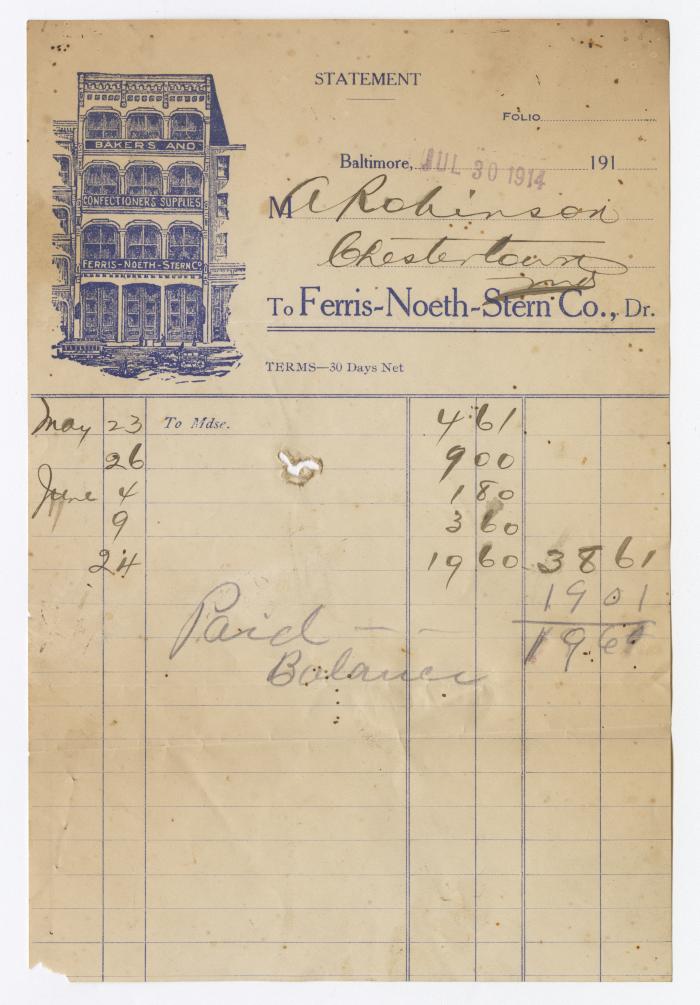 STATEMENT
FOLIO
BAKERS AND
CONFECTIONERS SUPPLIES
FERRIS-NOETH-STERN CO
Baltimore, JUL 30 1914 191
M A Robinson
Chestertown
Md
To Ferris-Noeth-Stern Co., Dr.
TERMS—30 Days Net
May 23 To Mdse. 4 61
26 9 00
June 4 1 80
9 3 60
24 19 60 38 61
19 01
Paid — — 19 60
Balance